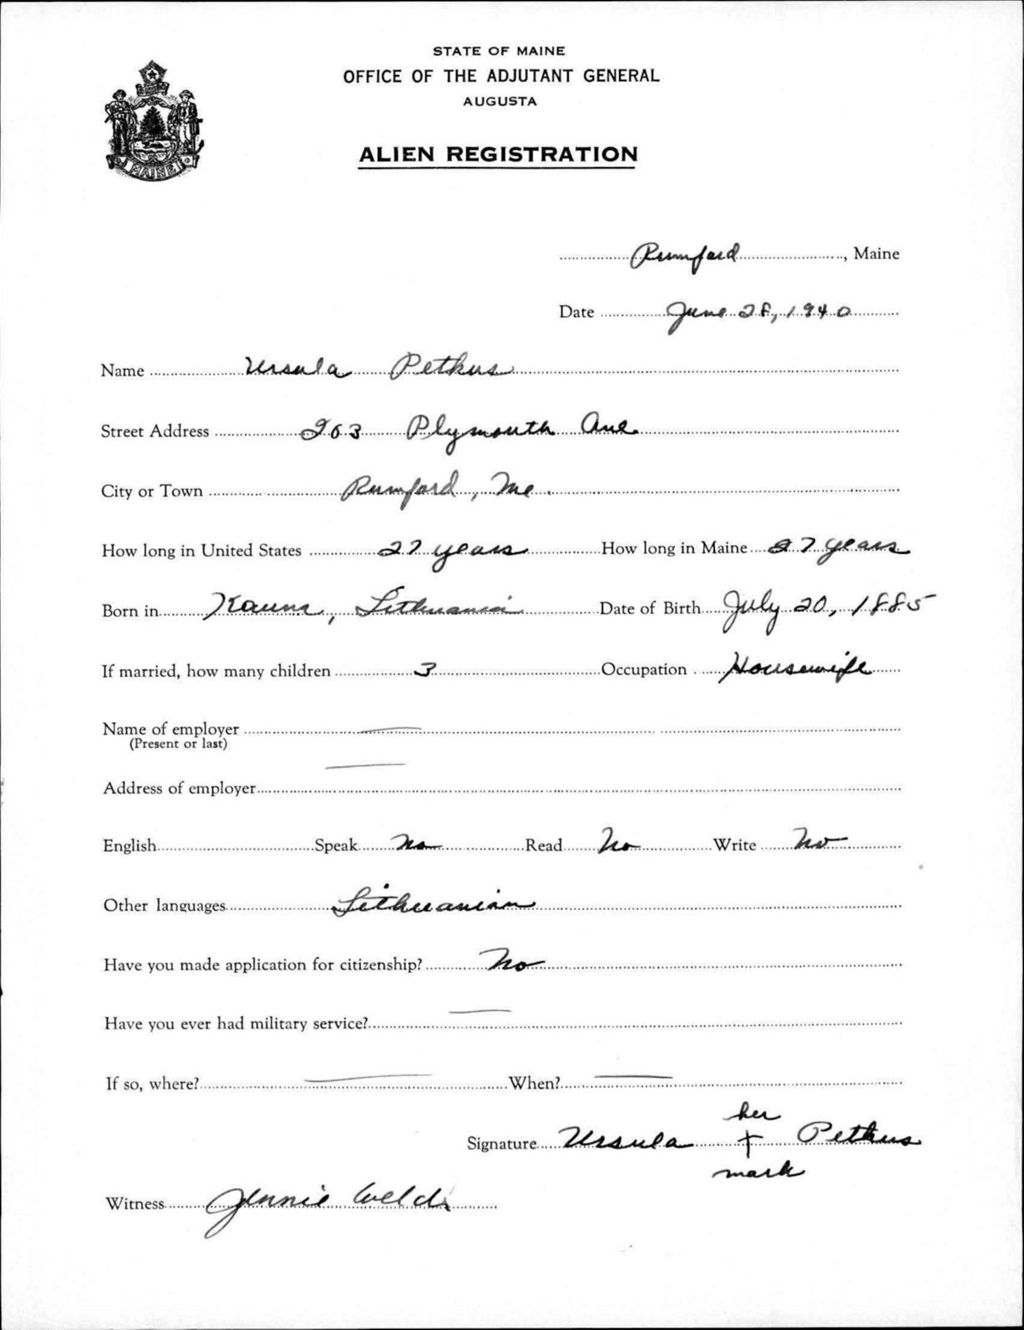 STATE OF MAINE
OFFICE OF THE ADJUTANT GENERAL
AUGUSTA
ALIEN REGISTRATION
MAINE
Rumford, Maine
Date June 28, 1940
Name Ursula Petkus
Street Address 263 Plymouth Ave
City or Town Rumford, Me.
How long in United States 27 years How long in Maine 27 years
Born in Kauna, Lithuania Date of Birth July 20, 1885
If married, how many children 3 Occupation Housewife
Name of employer
(Present or last)
Address of employer
English Speak No Read No Write No
Other languages Lithuanian
Have you made application for citizenship? No
Have you ever had military service?
If so, where? When?
her
Signature Ursula + Petkus
mark
Witness Jennie Welch